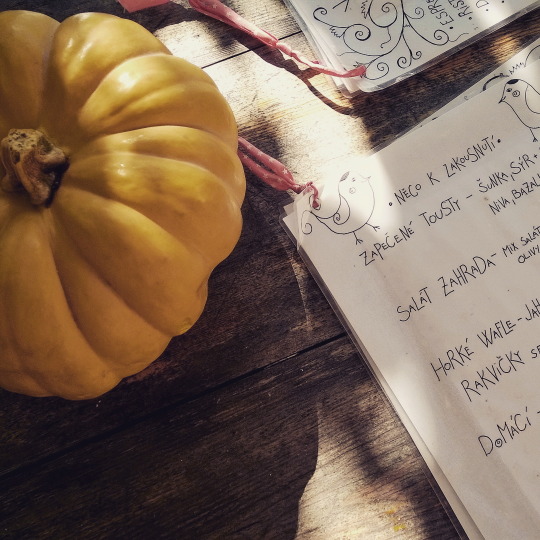 • NĚCO K ZAKOUSNUTÍ •
ZAPEČENÉ TOUSTY - ŠUNKA, SÝR
NIVA, BAZAL
SALÁT ZAHRADA - MIX SALÁT
OLIVY
HORKÉ WAFLE - JAH
RAKVIČKY SE
DOMÁCÍ -